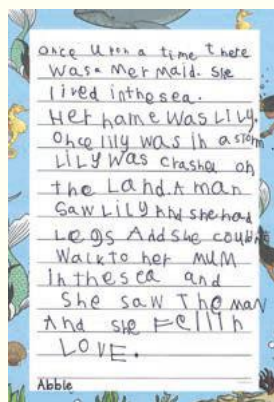 once upon a time there
was a mermaid. she
lived in the sea.
Her name was LiLy.
Once lily was in a storm
LiLy was crashed on
the Land. A man
saw LiLy And she had
Legs And she couldnt
walk to her MUM
in the sea and
she saw The man
And she Fell in
LOVE.
Abbie